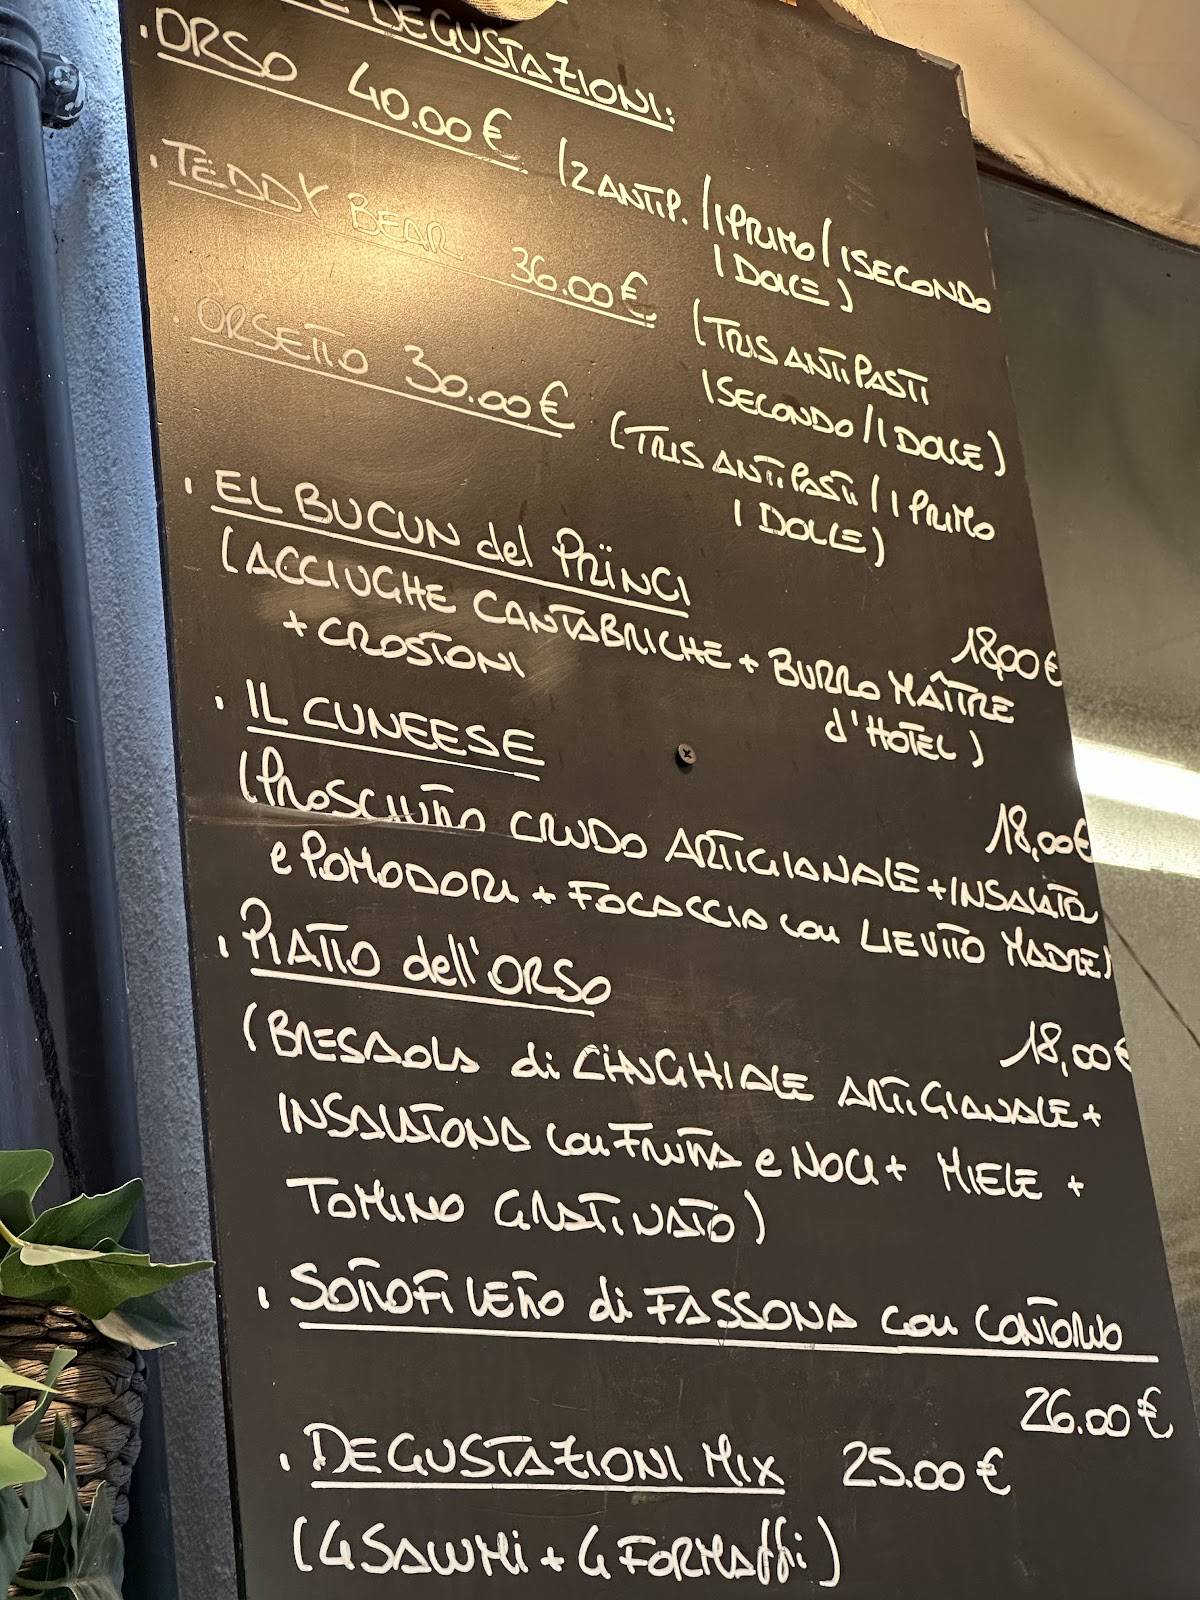 DEGUSTAZIONI:
. ORSO 40.00 € (2 ANTIP. / 1 PRIMO / 1 SECONDO
1 DOLCE )
. TEDDY BEAR 36.00 € (TRIS ANTIPASTI
1 SECONDO / 1 DOLCE )
. ORSETTO 30.00 € (TRIS ANTIPASTI / 1 PRIMO
1 DOLCE)
. EL BUCUN del PRÏNCI
18,00 €
(ACCIUGHE CANTABRICHE + BURRO MAÎTRE
+ CROSTONI d'HOTEL )
. IL CUNEESE
18,00 €
(PROSCIUTTO CRUDO ARTIGIANALE + INSALATA
e POMODORI + FOCACCIA con LIEVITO MADRE)
. PIATTO dell'ORSO
18,00 €
(BRESAOLA di CINGHIALE ARTIGIANALE +
INSALATONA con FRUTTA e NOCI + MIELE +
TOMINO GRATINATO )
. SOTTOFILETTO di FASSONA con CONTORNO
26.00 €
. DEGUSTAZIONI MIX 25.00 €
(4 SALUMI + 4 FORMAGGI )